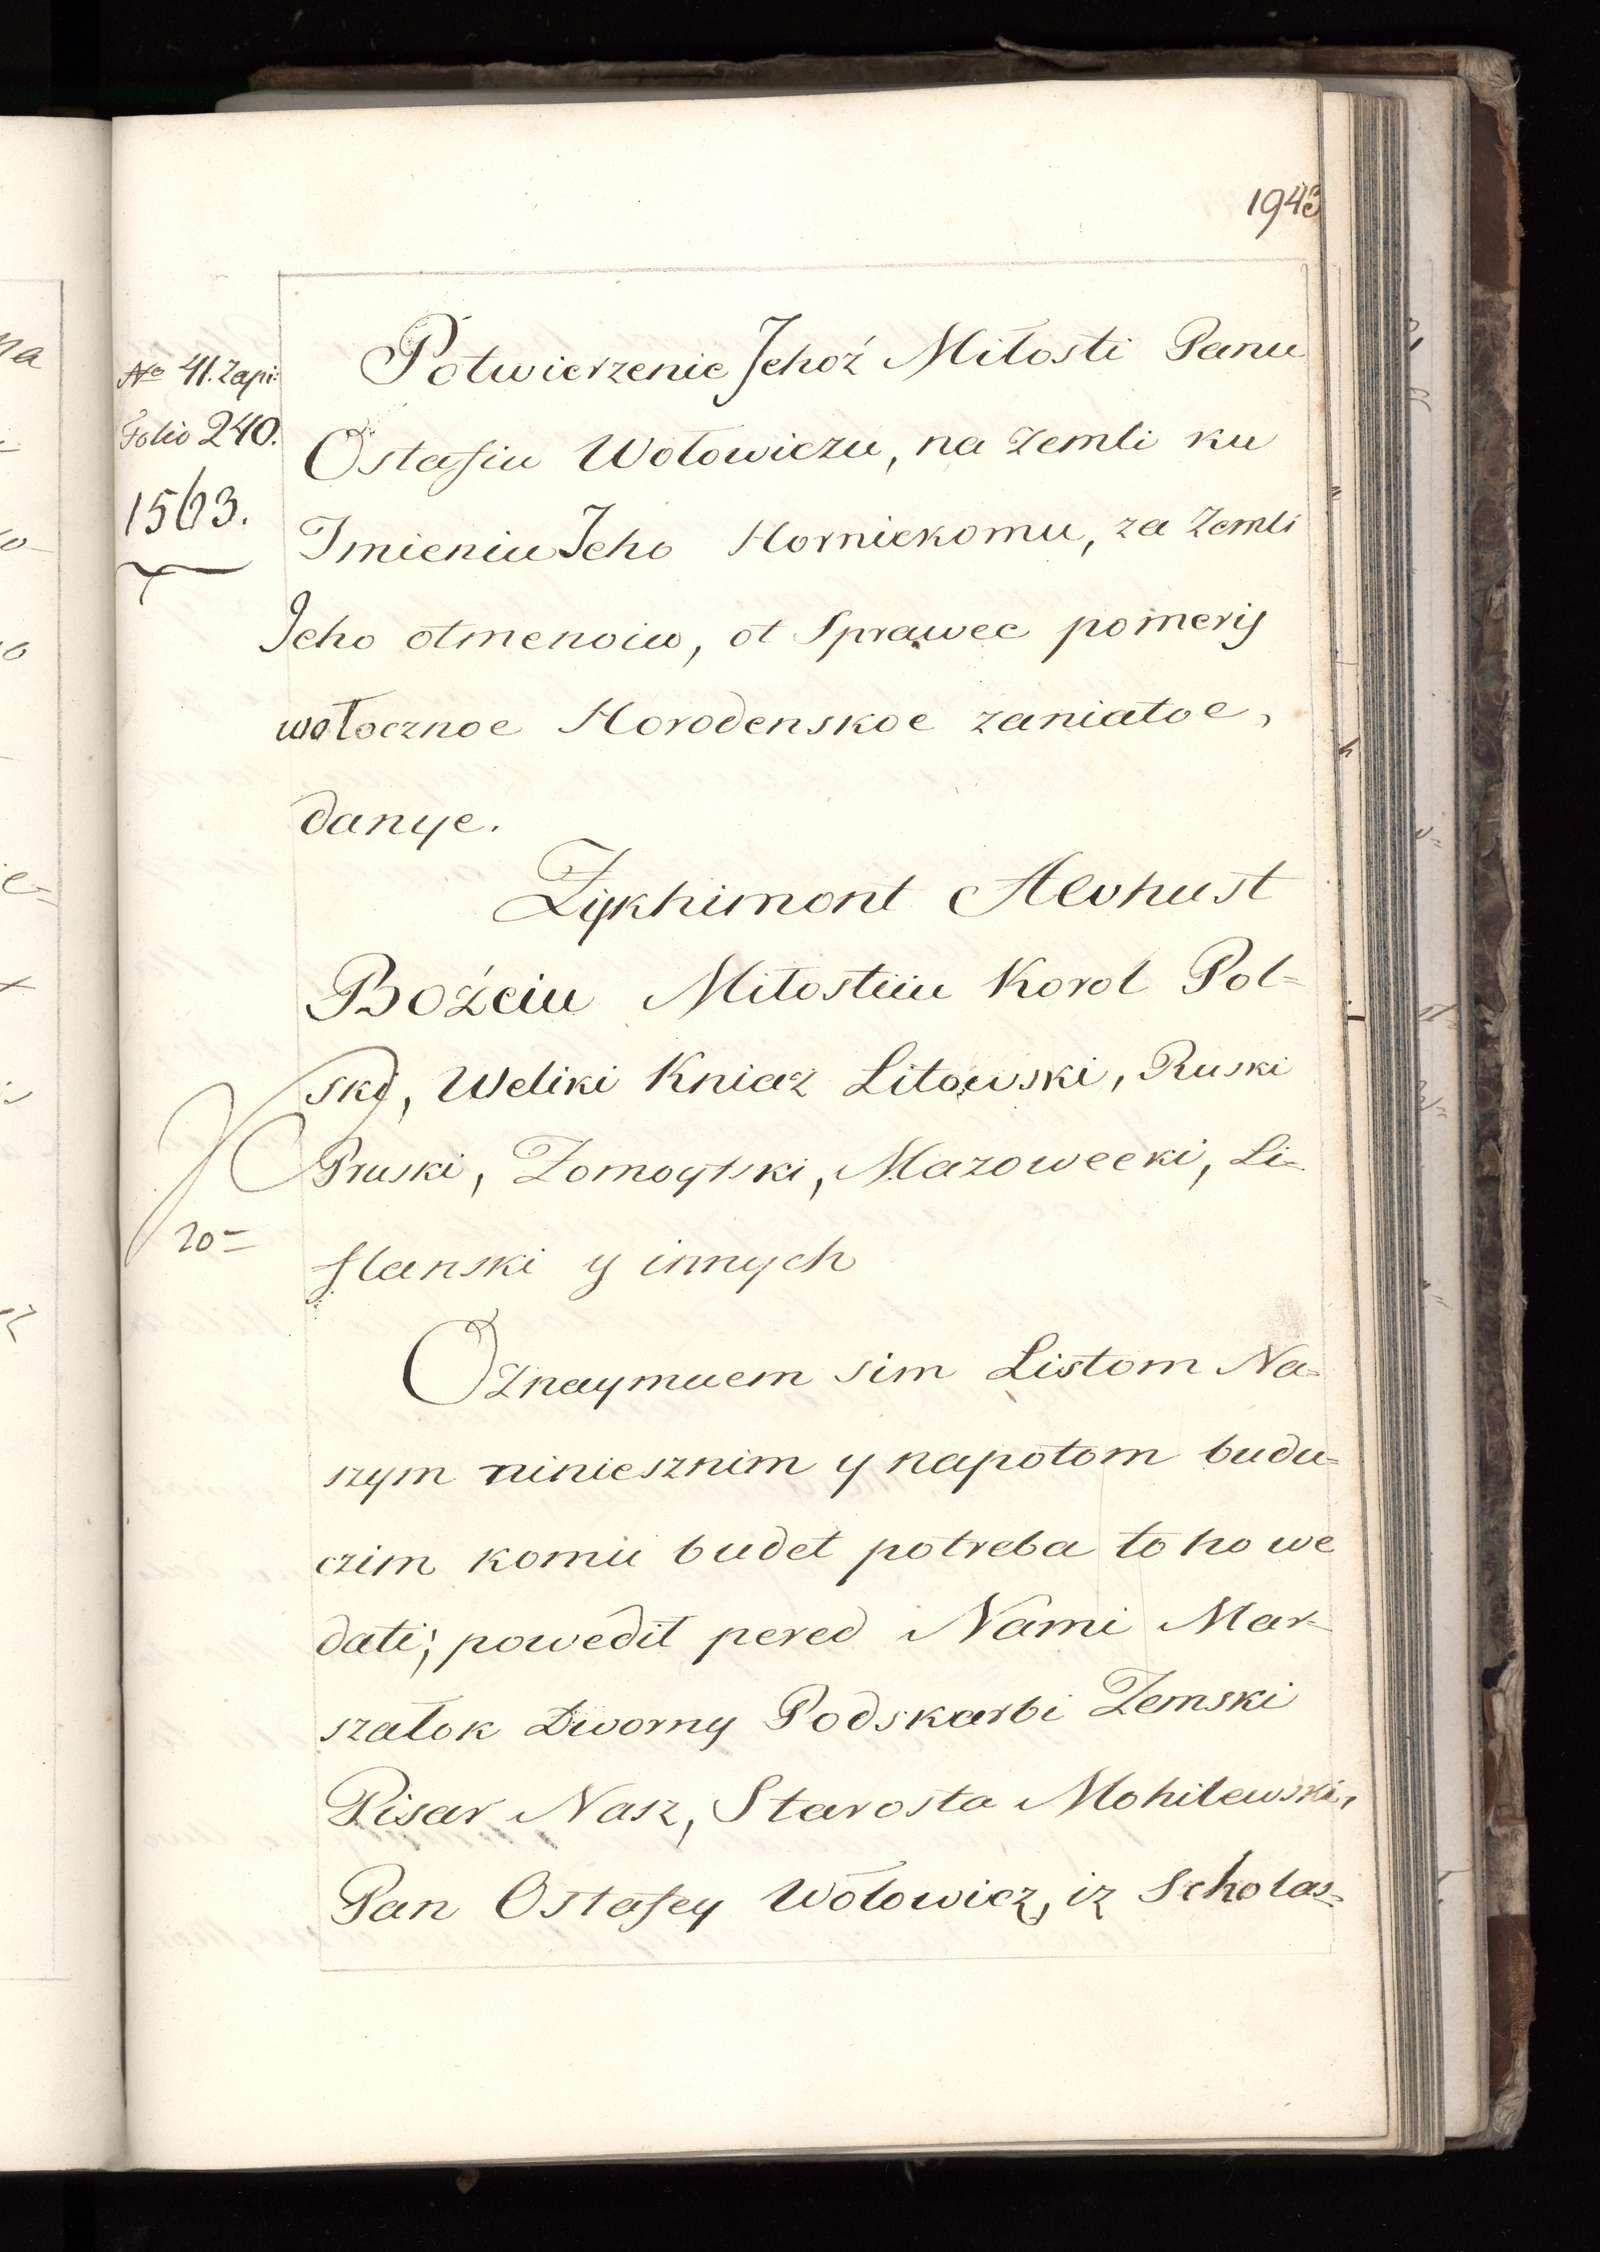 1943
No 41. Zapi:
Folio 240.
1563.
Potwierzenie Jehoż Miłosti Panu
Ostafiu Wołowiczu, na Zemli ku
Imieniu Jeho Hornickomu, za Zemli
Jeho otmenoiu, ot Sprawec pomery
wołocznoe Horodenskoe zaniatoe,
danye.
Zykhimont Aevhust
Bożeiu Miłostiiu Korol Pol=
ski, Weliki Kniaz Litowski, Ruski
Pruski, Zomoytski, Mazowecki, Li=
flanski y innych
20=
Oznaymuem sim Listom Na=
szym niniesznim y napotom budu=
czim komu budet potreba toho we
dati; powedil pered Nami Mar=
szałok Dworny Podskarbi Zemski
Pisar Nasz, Starosta Mohilewski,
Pan Ostafey Wołowicz, iz Scholas=